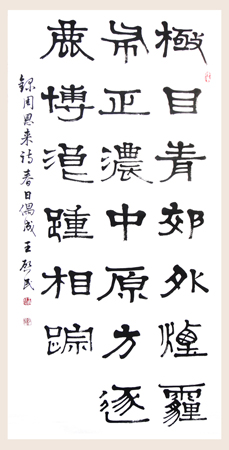 極目青郊外煙霾
布正濃中原方逐
鹿博浪踵相踪
録周恩来诗春日偶成 王民